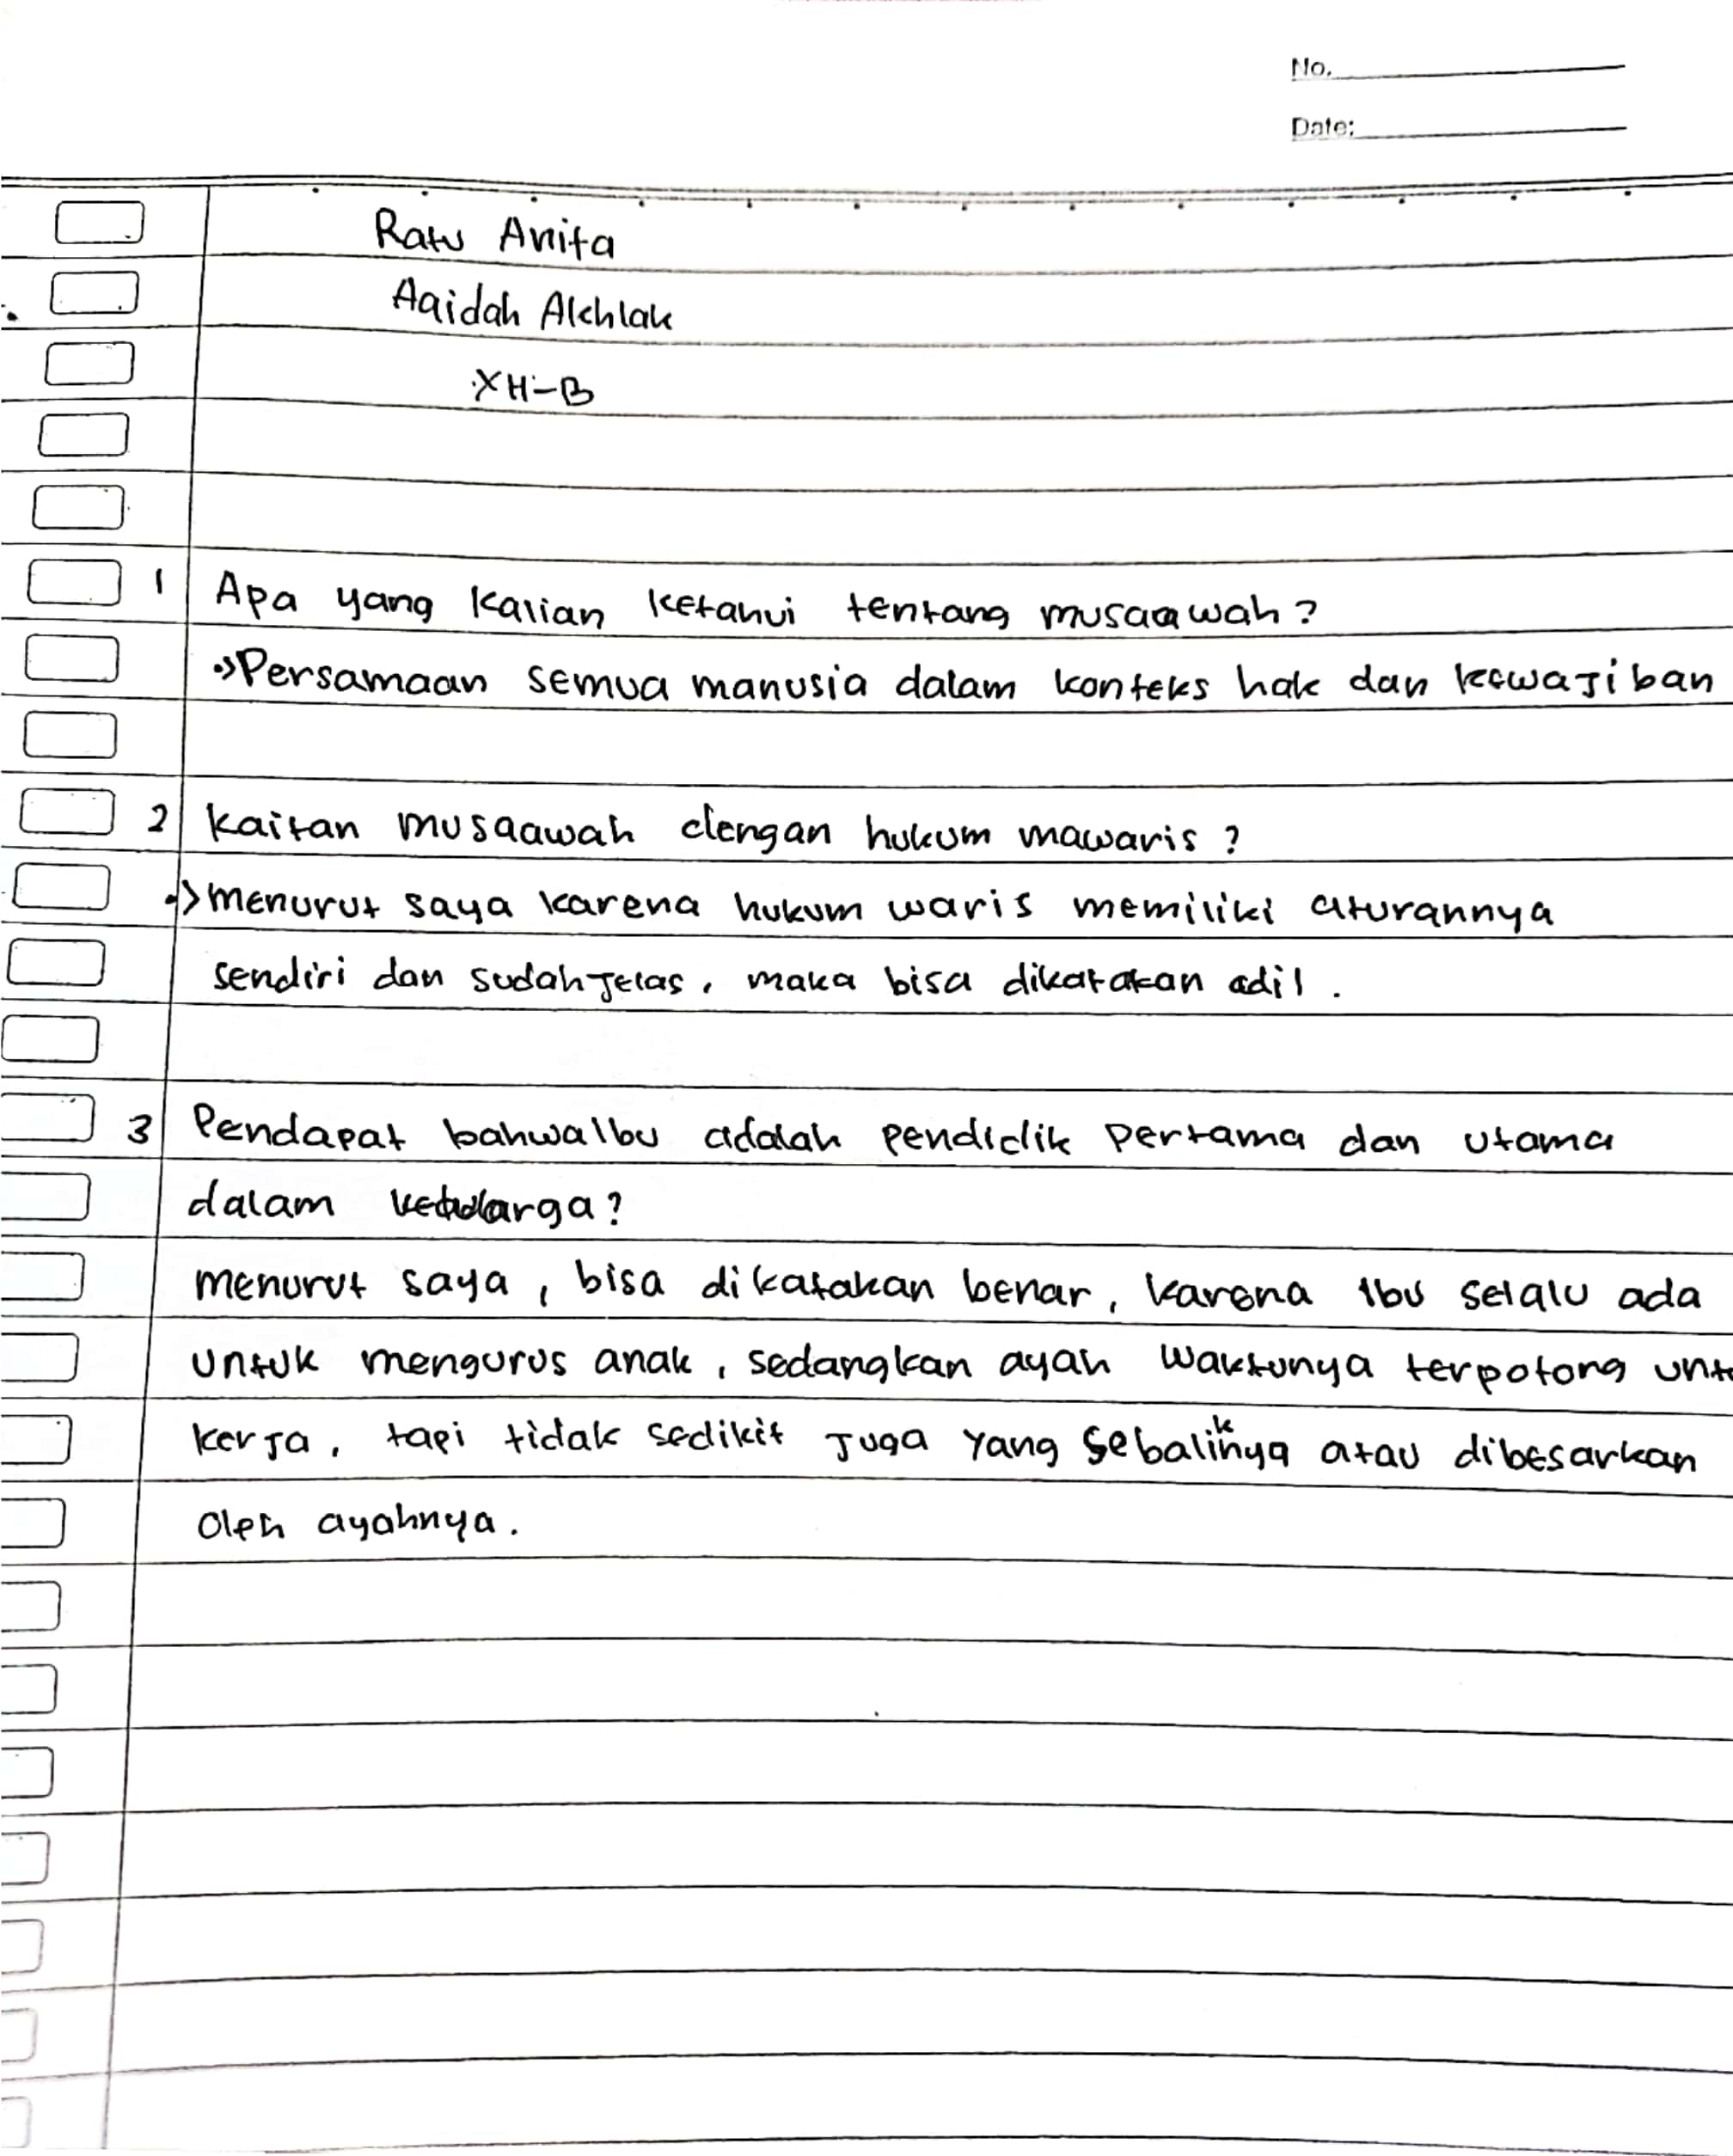 No.
Date:
Ratu Anita
Aqidah Akhlak
XII-B
1 Apa yang kalian ketahui tentang musaawah?
Persamaan semua manusia dalam konteks hak dan kewajiban
2 kaitan musaawah dengan hukum mawaris?
menurut saya karena hukum waris memiliki aturannya
sendiri dan sudah jelas, maka bisa dikatakan adil.
3 Pendapat bahwa Ibu adalah pendidik pertama dan utama
dalam keluarga?
menurut saya, bisa dikatakan benar, karena Ibu selalu ada
untuk mengurus anak, sedangkan ayah waktunya terpotong unt
kerja, tapi tidak sedikit juga yang sebaliknya atau dibesarkan
oleh ayahnya.